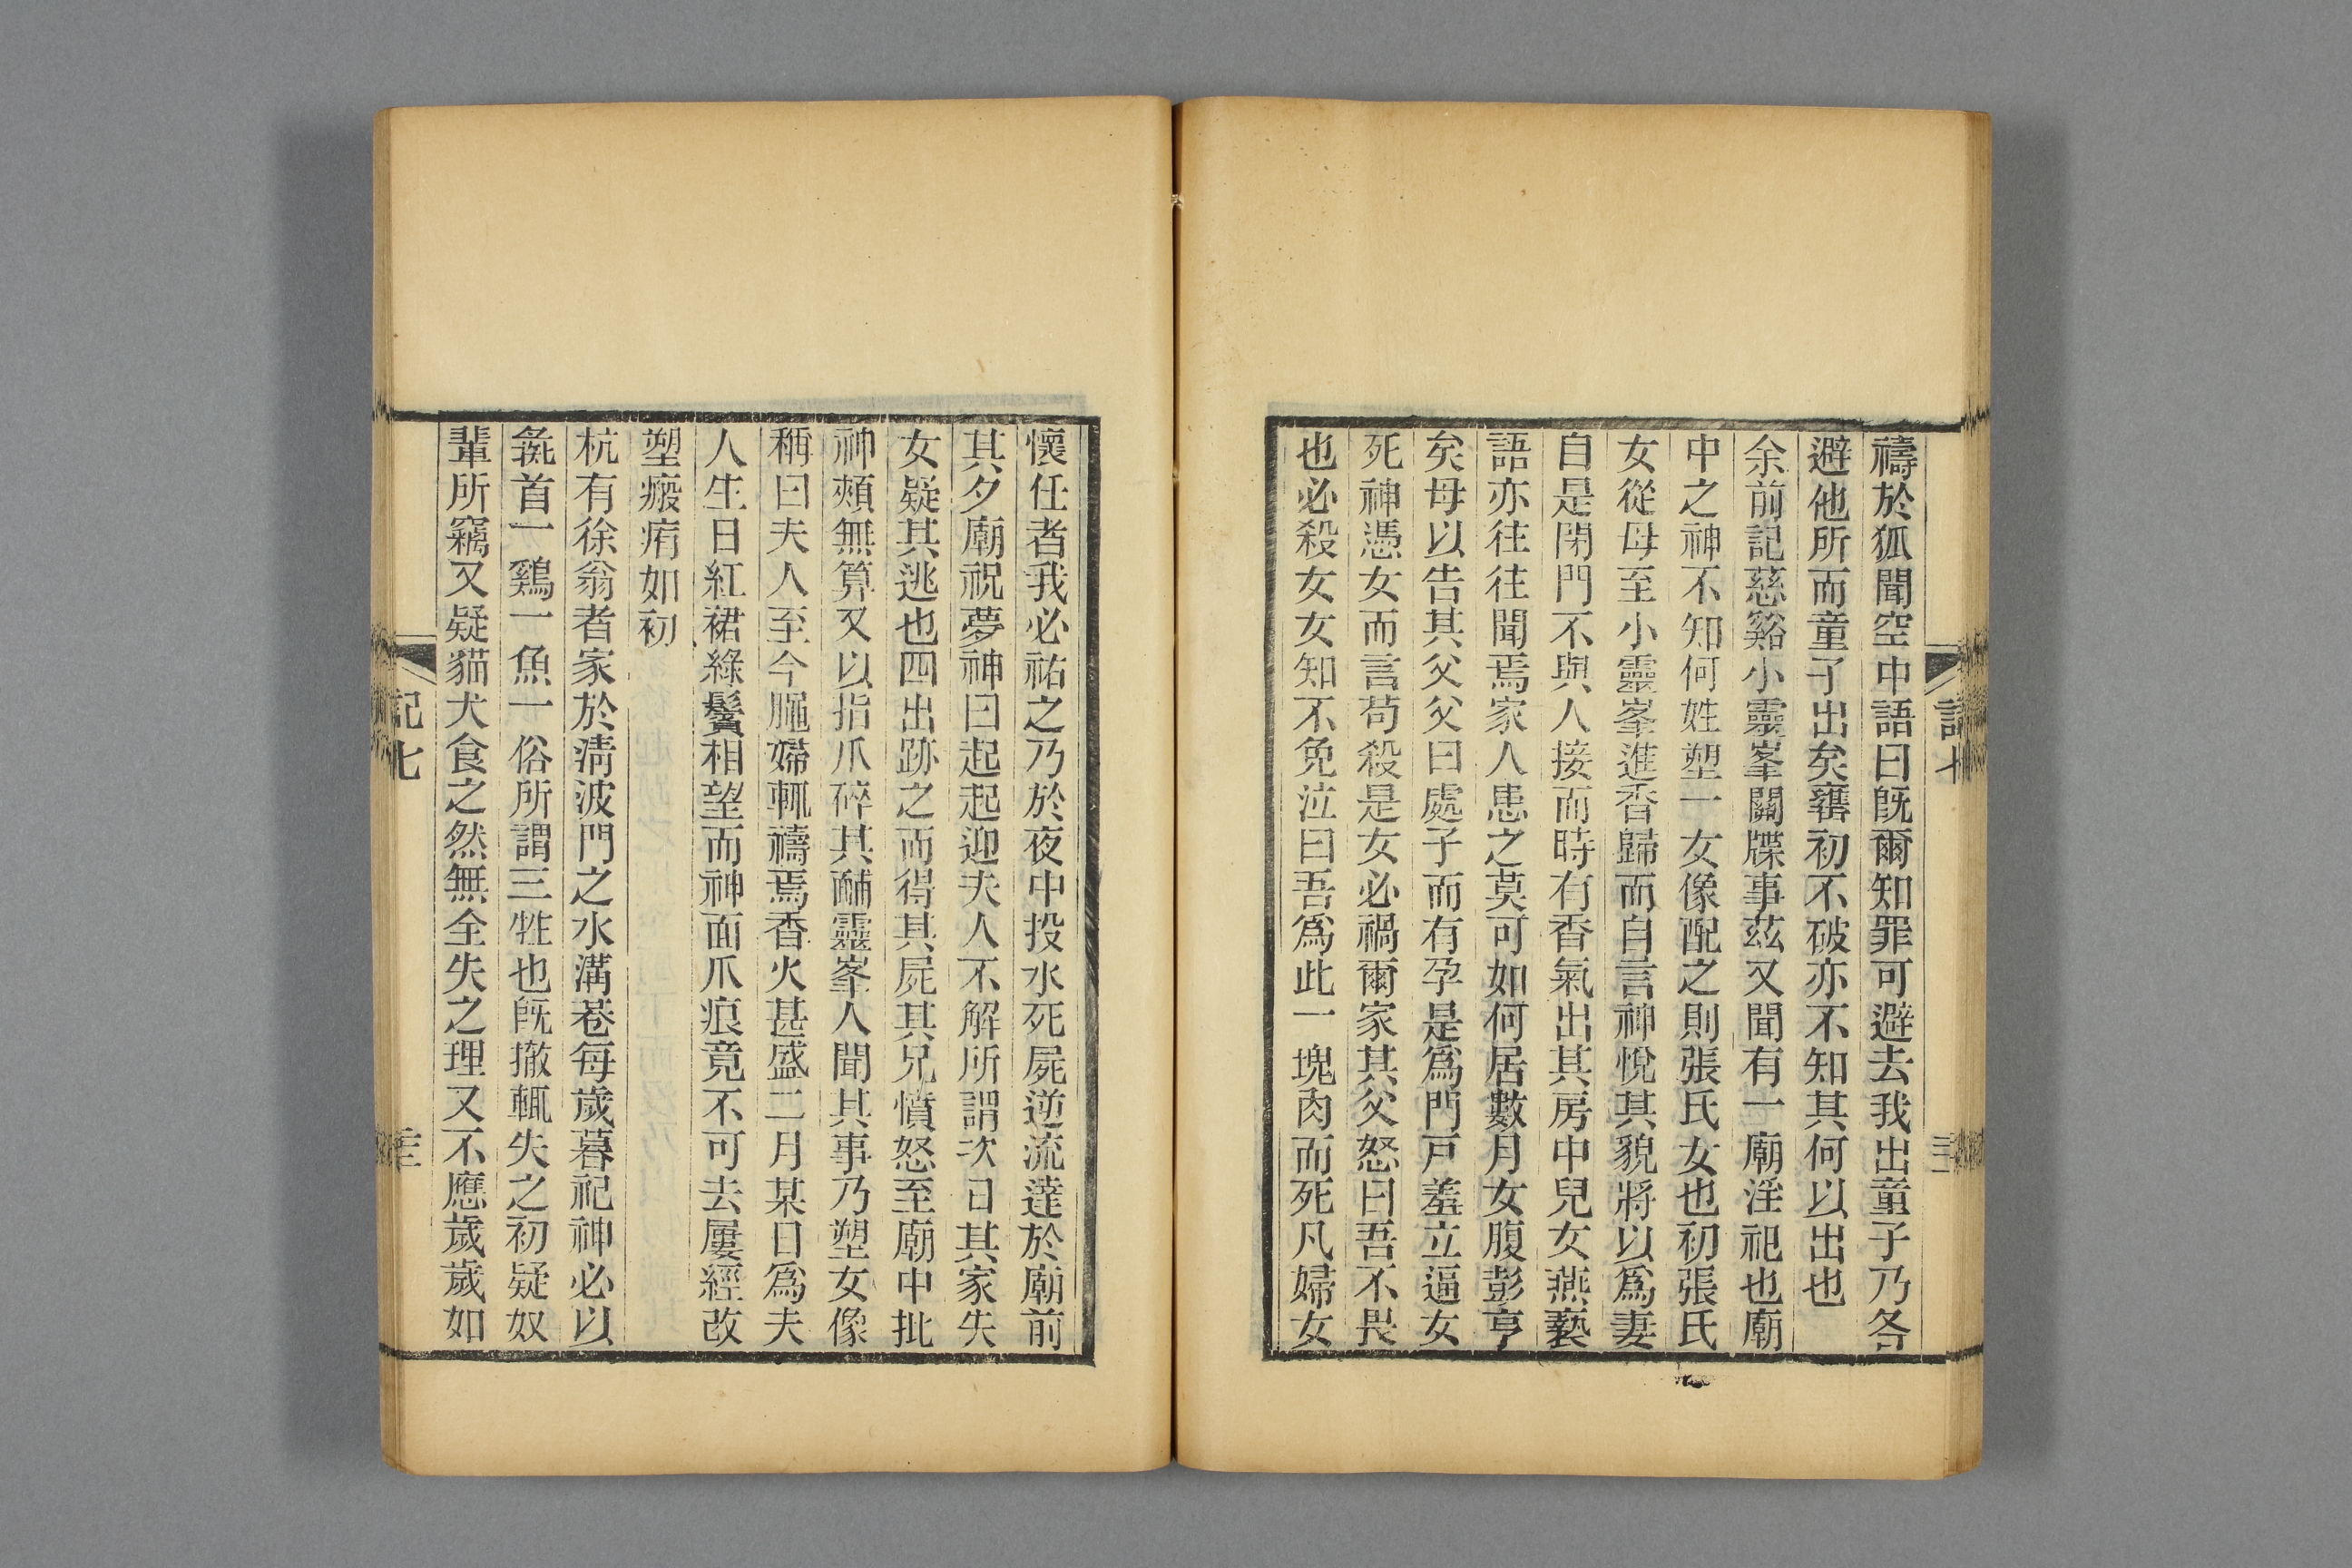 禱於狐聞空中語曰旣爾知罪可避去我出童子乃各
避他所而童子出矣罋初不破亦不知其何以出也
余前記慈谿小靈峯關牒事茲又聞有一廟淫祀也廟
中之神不知何姓塑一女像配之則張氏女也初張氏
女從母至小靈峯進香歸而自言神悅其貌將以爲妻
自是閉門不與人接而時有香氣出其房中兒女燕褻
語亦往往聞焉家人患之莫可如何居數月女腹彭亨
矣母以告其父父曰處子而有孕是爲門戸羞立逼女
死神憑女而言苟殺是女必禍爾家其父怒曰吾不畏
也必殺女女知不免泣曰吾爲此一塊肉而死凡婦女
懷任者我必祐之乃於夜中投水死屍逆流達於廟前
其夕廟祝夢神曰起起迎夫人不解所謂次日其家失
女疑其逃也四出跡之而得其屍其兄憤怒至廟中批
神頰無算又以指爪碎其酺靈峯人聞其事乃塑女像
稱曰夫人至今䵴婦輒禱焉香火甚盛二月某日爲夫
人生日紅裙綠鬢相望而神面爪痕竟不可去屢經改
塑瘢痏如初
杭有徐翁者家於淸波門之水溝巷每歲暮祀神必以
彘首一鷄一魚一俗所謂三牲也旣撤輒失之初疑奴
輩所竊又疑貓犬食之然無全失之理又不應歲歲如
記七